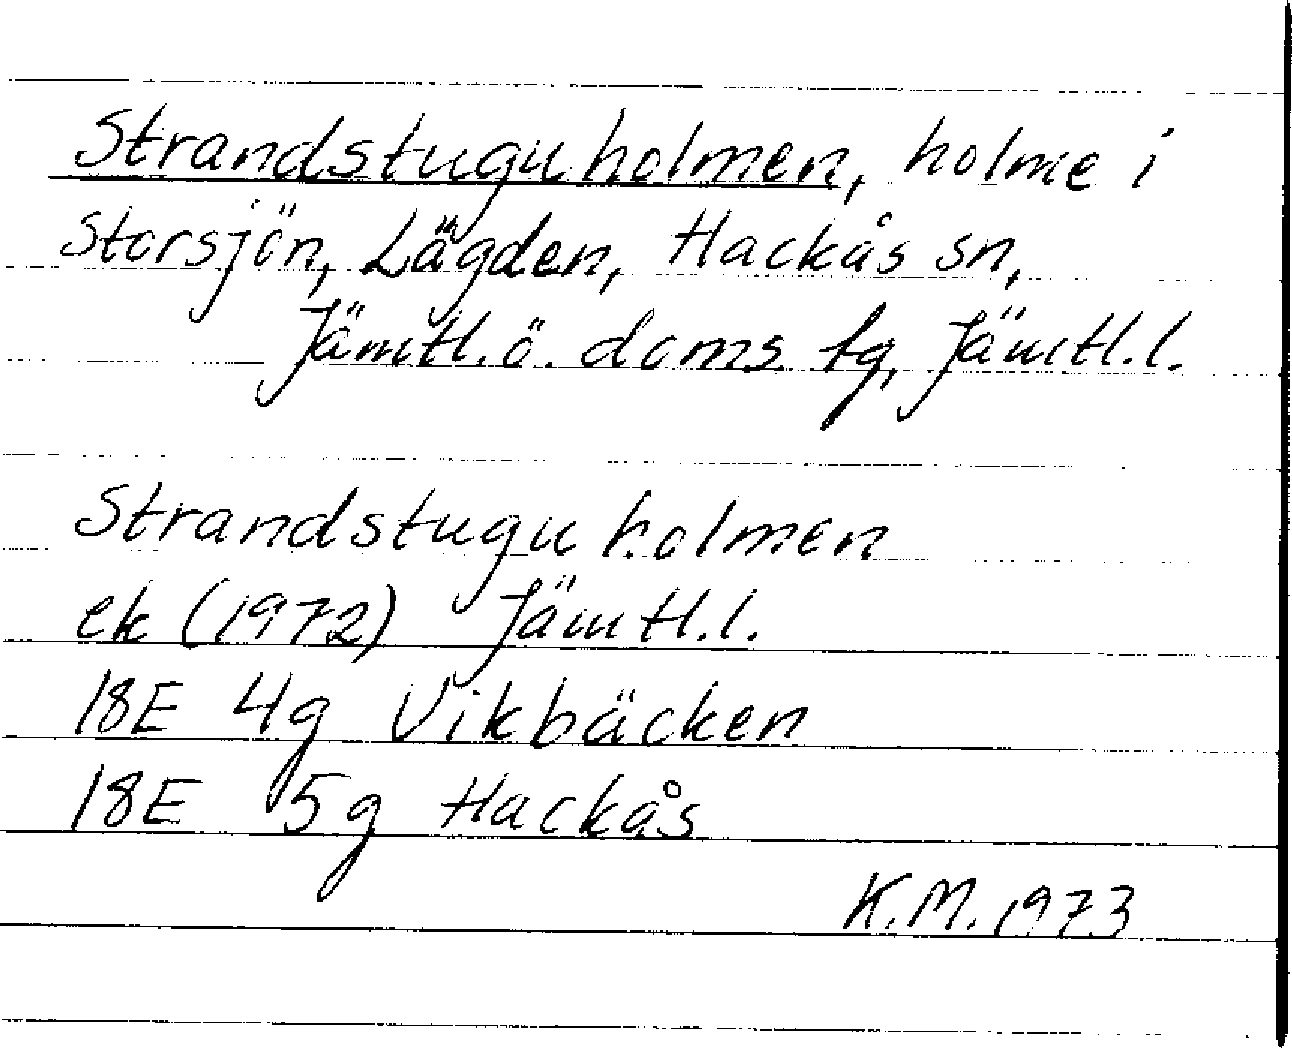 Strandstuguholmen, holme i
Storsjön, Lägden, Hackås sn,
Jämtl. ö. doms fg, Jämtl. l.
Strandstuguholmen
ek (1972) Jämtl. l.
18E 4g Vikbäcken
18E 5g Hackås
K.M. 1973